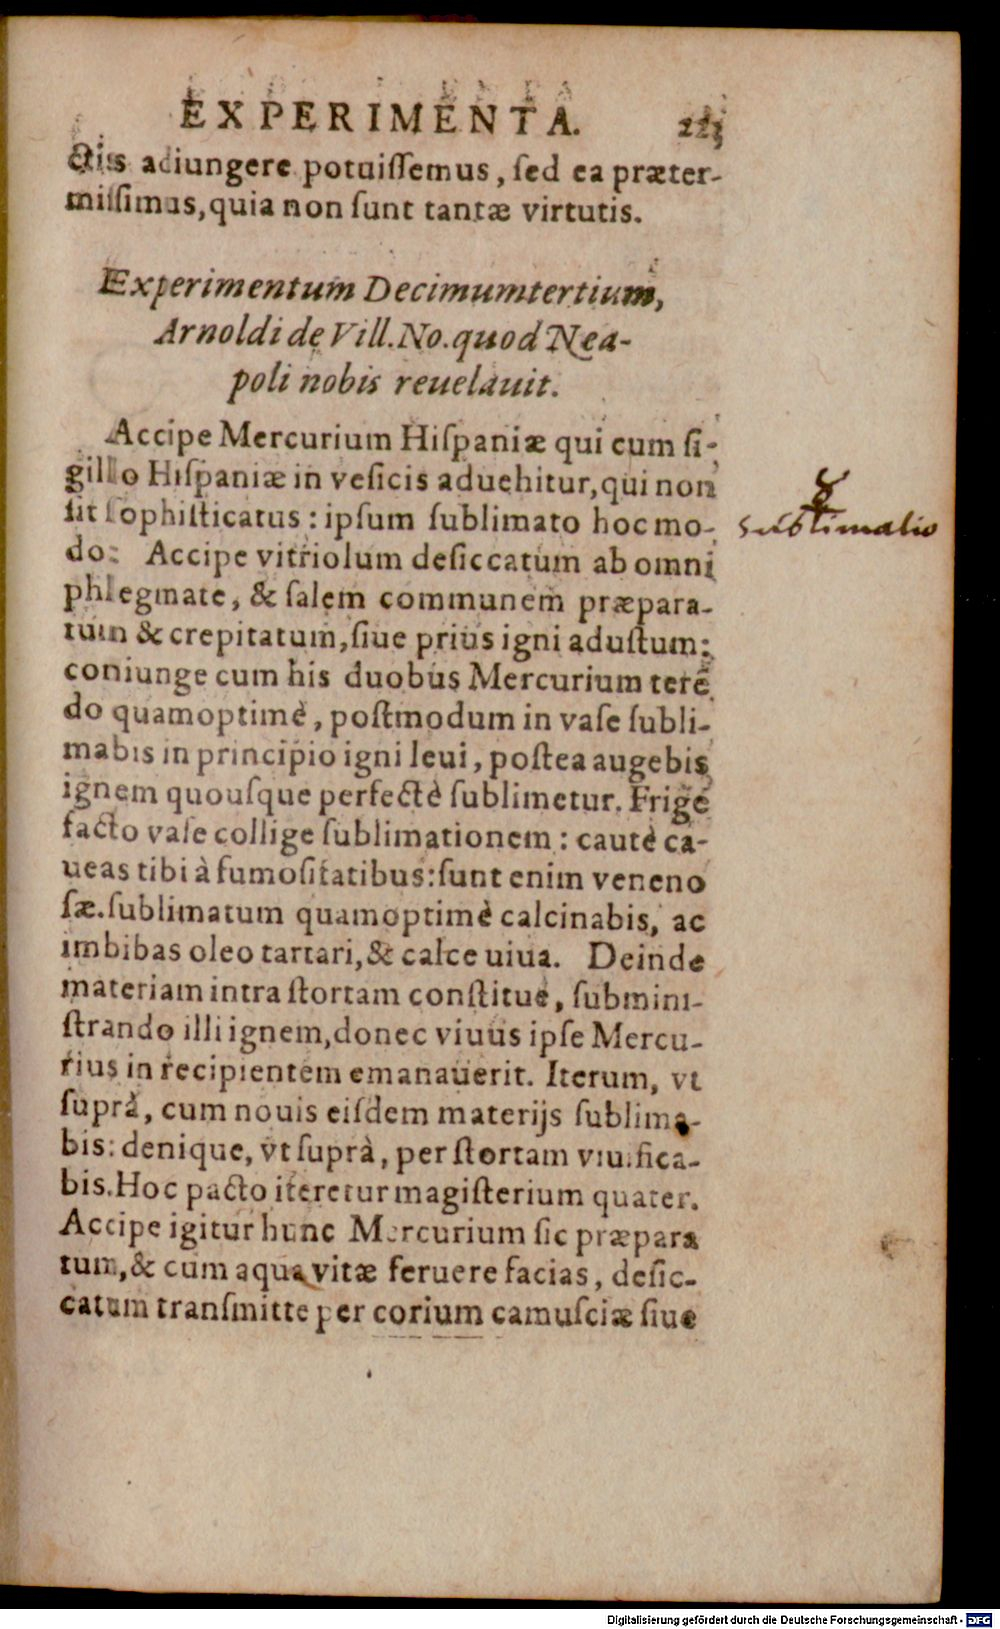 EXPERIMENTA. 223
ctis adiungere potuiſſemus, ſed ea præter-
miſſimus, quia non ſunt tantæ virtutis.
Experimentum Decimumtertium,
Arnoldi de Vill. No. quod Nea-
poli nobis reuelauit.
Accipe Mercurium Hiſpaniæ qui cum ſi-
gillo Hiſpaniæ in veſicis aduehitur, qui non
ſit ſophiſticatus: ipſum ſublimato hoc mo-
do: Accipe vitriolum deſiccatum ab omni
phlegmate, & ſalem communem præpara-
tum & crepitatum, ſiue prius igni aduſtum:
coniunge cum his duobus Mercurium terē
do quamoptimè, poſtmodum in vaſe ſubli-
mabis in principio igni leui, poſtea augebis
ignem quouſque perfectè ſublimetur. Frige
facto vaſe collige ſublimationem: cautè ca-
ueas tibi à fumoſitatibus: ſunt enim veneno
ſæ. ſublimatum quamoptimè calcinabis, ac
imbibas oleo tartari, & calce uiua. Deinde
materiam intra ſtortam conſtitue, ſubmini-
ſtrando illi ignem, donec viuus ipſe Mercu-
rius in recipientem emanauerit. Iterum, vt
ſuprà, cum nouis eiſdem materijs ſublima-
bis: denique, vt ſuprà, per ſtortam viuifica-
bis. Hoc pacto iteretur magiſterium quater.
Accipe igitur hunc Mercurium ſic præpara
tum, & cum aqua vitæ feruere facias, deſic-
catum tranſmitte per corium camuſciæ ſiue
☿
sublimatio
Digitalisierung gefördert durch die Deutsche Forschungsgemeinschaft - DFG